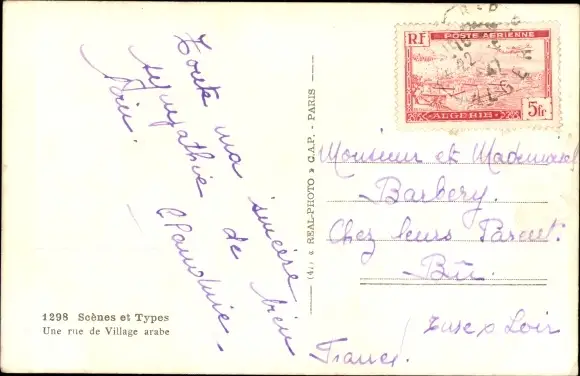 Toute ma sincère
sympathie de bien
loin.
Claudine.
1298 Scènes et Types
Une rue de Village arabe
(47) « REAL-PHOTO » C.A.P. - PARIS
RF
POSTE AERIENNE
ALGERIE
5fr
ALGER
Monsieur et Mademoisel
Barbery.
Chez leurs Parents.
Bû
Eure & Loir
France.